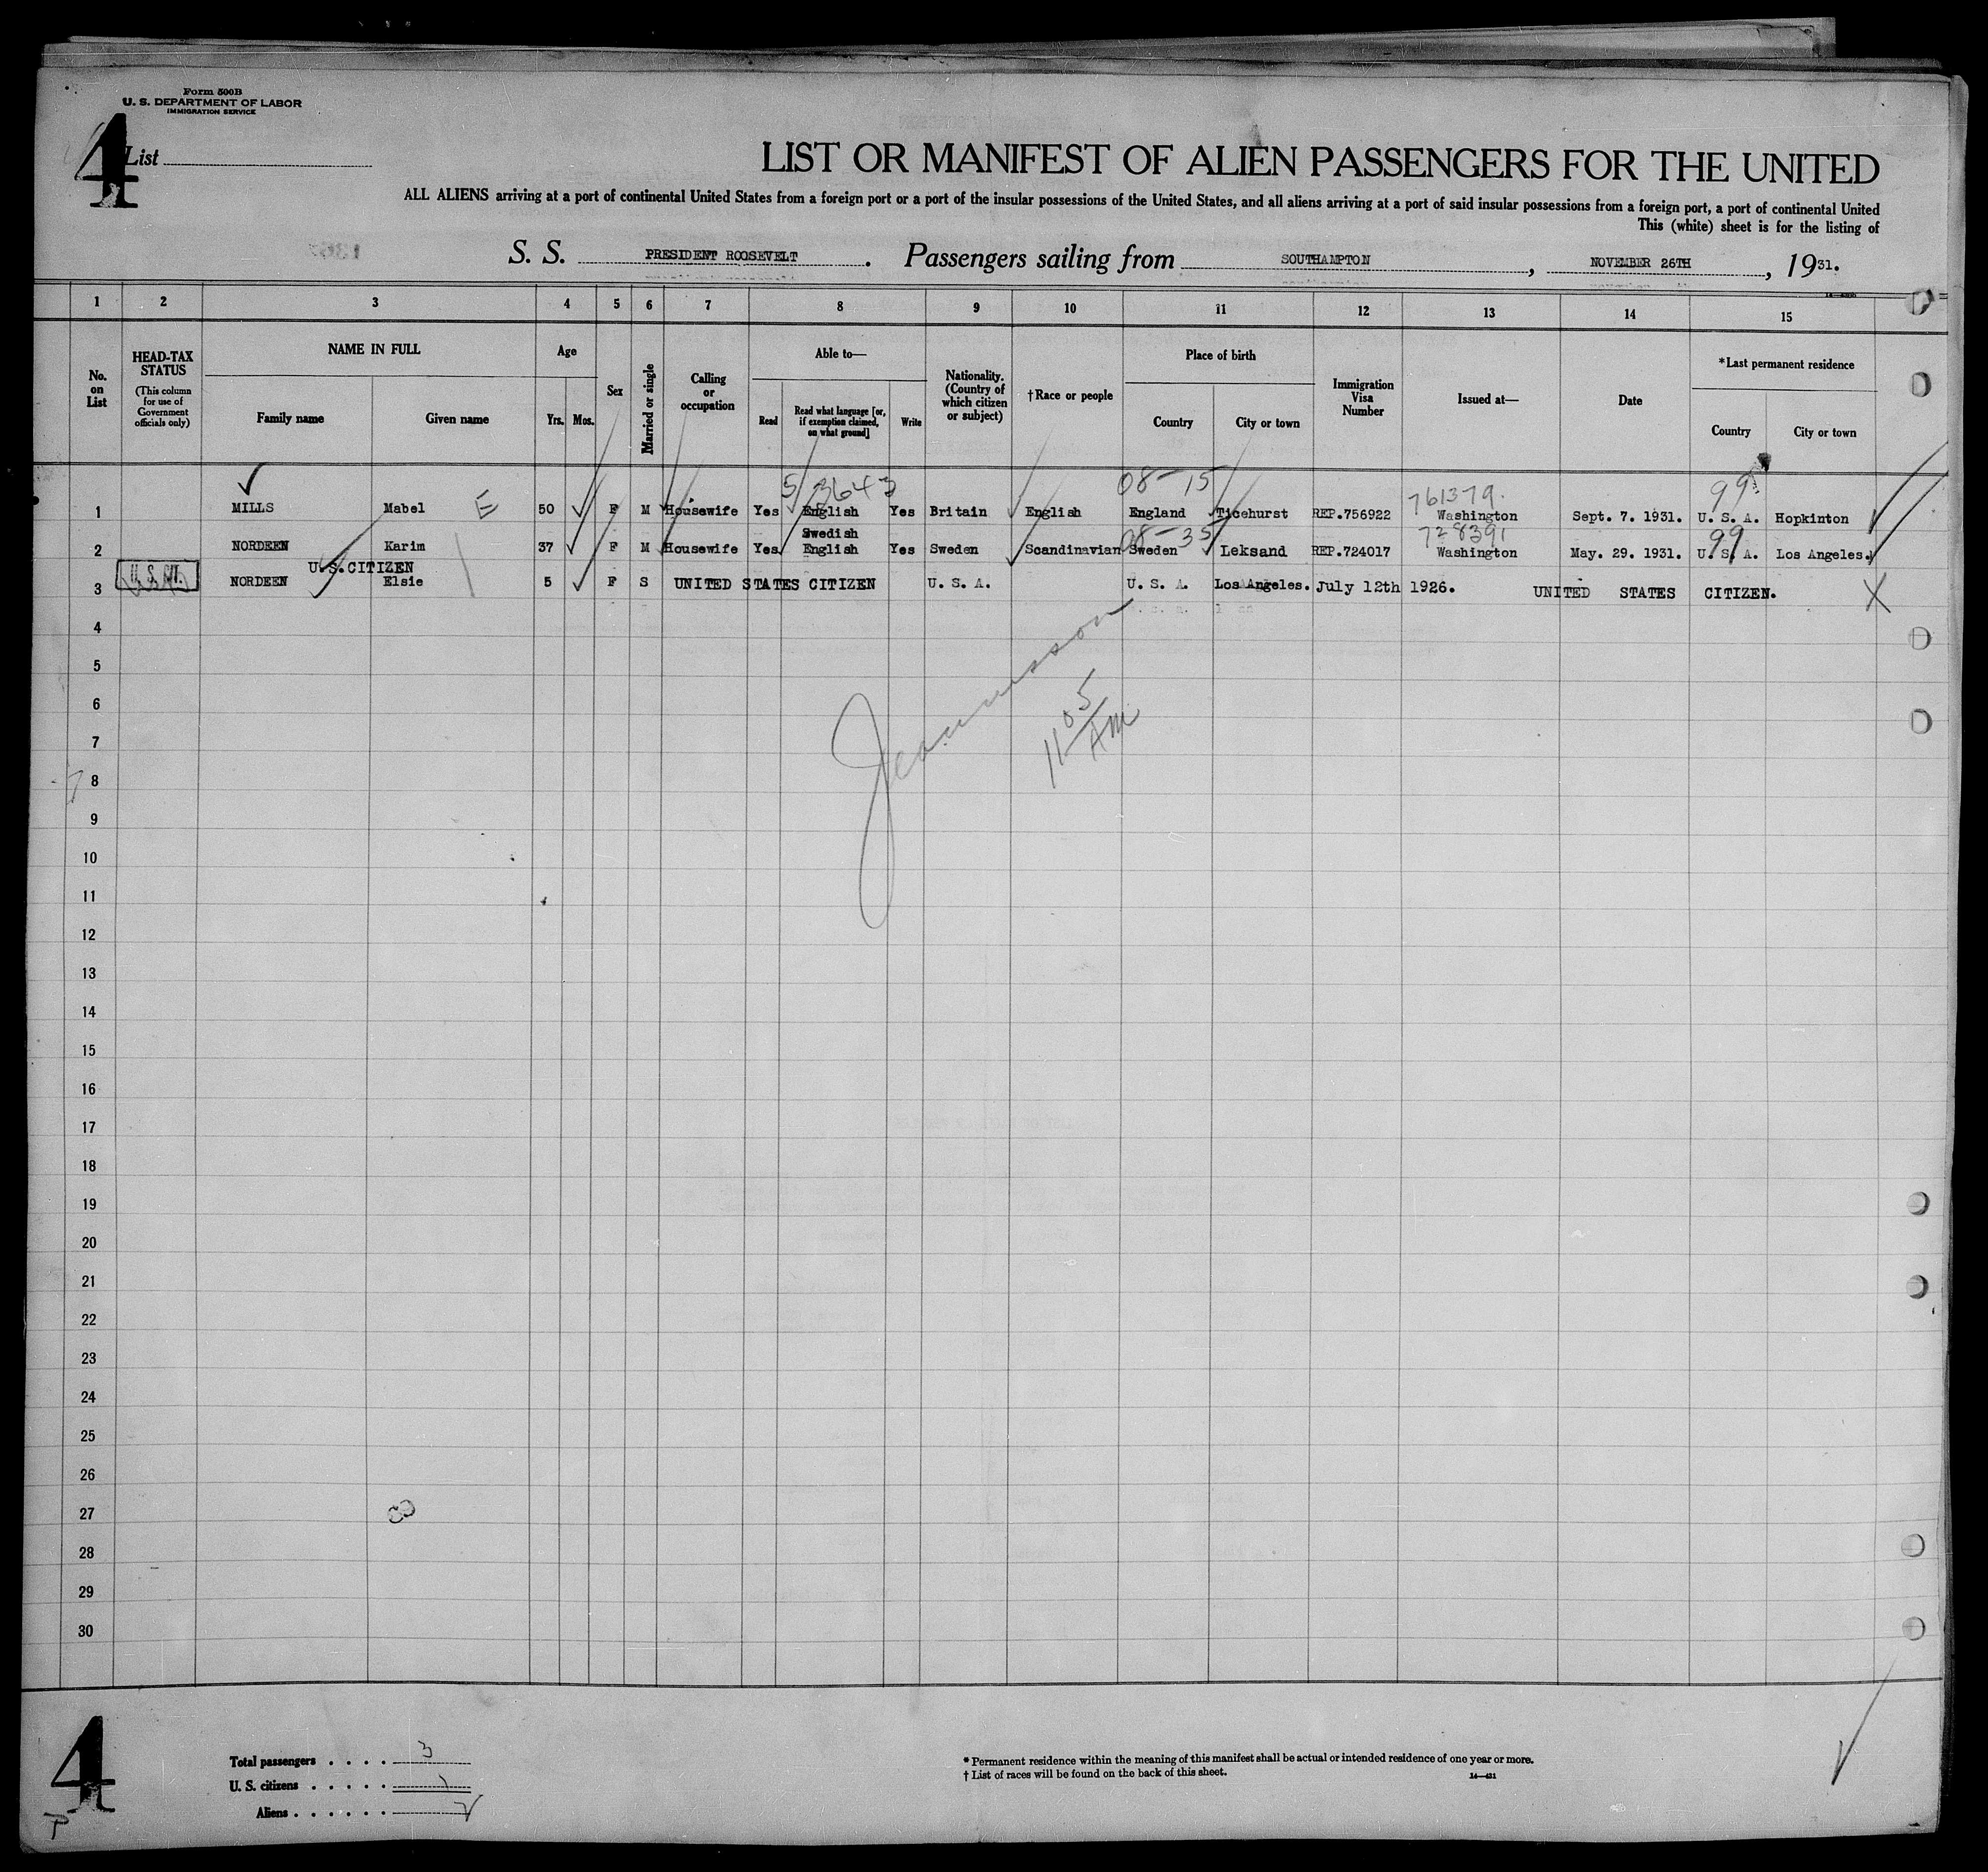 Form 500B
U. S. DEPARTMENT OF LABOR
IMMIGRATION SERVICE
4
List
LIST OR MANIFEST OF ALIEN PASSENGERS FOR THE UNITED
ALL ALIENS arriving at a port of continental United States from a foreign port or a port of the insular possessions of the United States, and all aliens arriving at a port of said insular possessions from a foreign port, a port of continental United
This (white) sheet is for the listing of
S. S. PRESIDENT ROOSEVELT. Passengers sailing from SOUTHAMPTON, NOVEMBER 26TH, 1931.
1 2 3 4 5 6 7 8 9 10 11 12 13 14 15
No. on List
HEAD-TAX STATUS
(This column for use of Government officials only)
NAME IN FULL
Family name
Given name
Age
Yrs.
Mos.
Sex
Married or single
Calling or occupation
Able to—
Read
Read what language [or, if exemption claimed, on what ground]
Write
Nationality. (Country of which citizen or subject)
†Race or people
Place of birth
Country
City or town
Immigration Visa Number
Issued at—
Date
*Last permanent residence
Country
City or town
5 3643 08-15 761379. 99
1 MILLS Mabel E 50 F M Housewife Yes English Yes Britain English England Ticehurst REP.756922 Washington Sept. 7. 1931. U. S. A. Hopkinton
Swedish 08-35 728391 99
2 NORDEEN Karim 37 F M Housewife Yes English Yes Sweden Scandinavian Sweden Leksand REP.724017 Washington May. 29. 1931. U. S. A. Los Angeles.
U.S.CITIZEN
3 NORDEEN Elsie 5 F S UNITED STATES CITIZEN U. S. A. U. S. A. Los Angeles. July 12th 1926. UNITED STATES CITIZEN. X
4
5
6
7
8
9
10
11
12
13
14
15
16
17
18
19
20
21
22
23
24
25
26
27
28
29
30
11 05 AM
4
Total passengers . . . . 3
U. S. citizens . . . . . 1
Aliens . . . . . . 2
* Permanent residence within the meaning of this manifest shall be actual or intended residence of one year or more.
† List of races will be found on the back of this sheet.
14—431